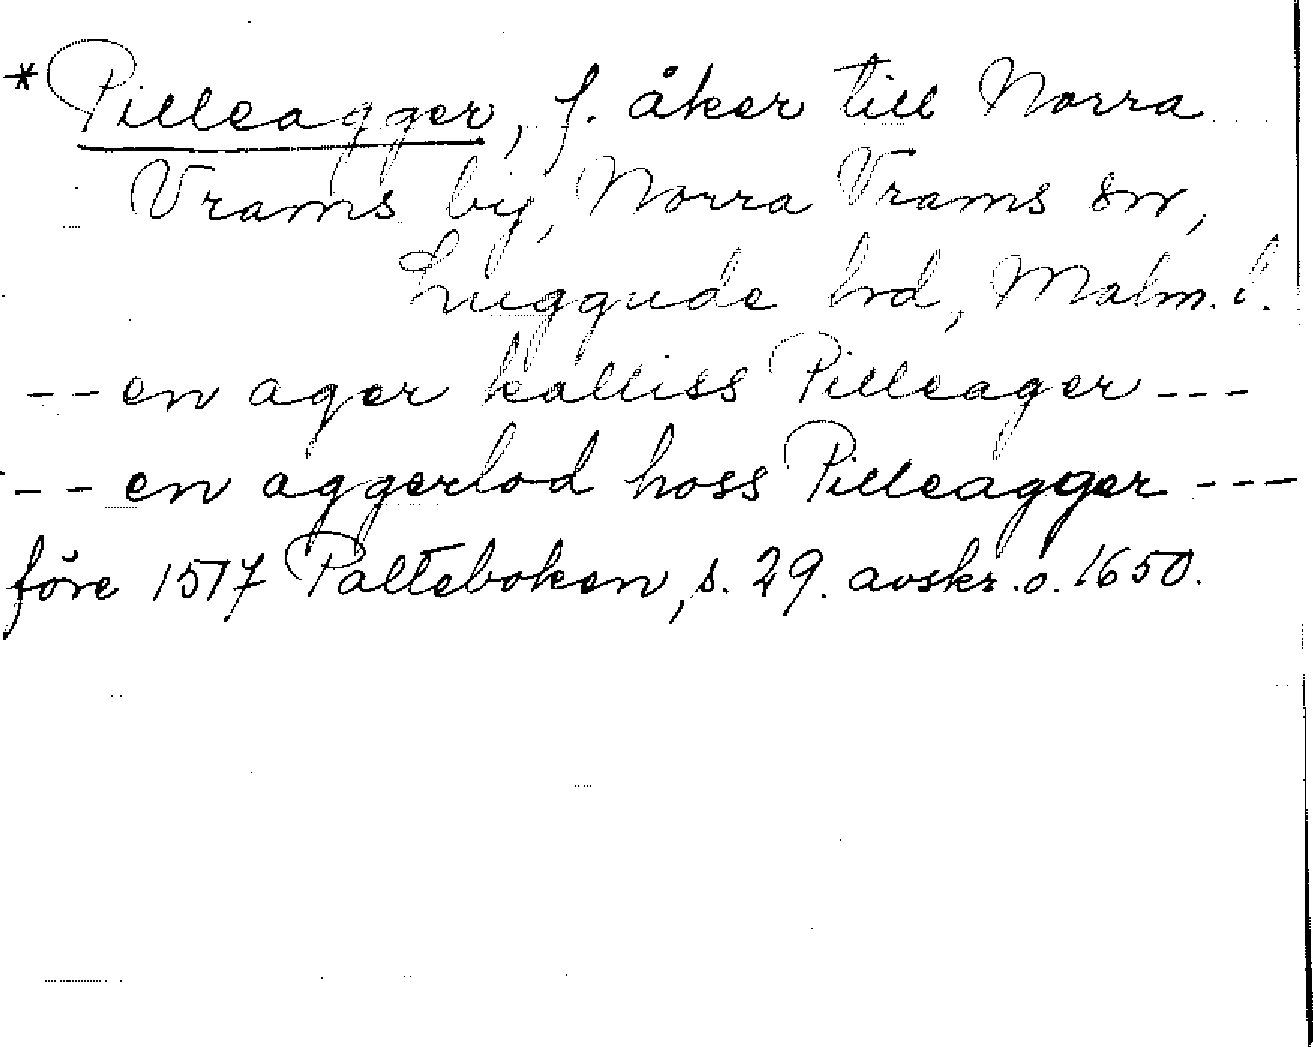 *Pilleagger, f. åker till Norra
Vrams by, Norra Vrams sn,
Luggude hd, Malm. l.
-- en ager kalliss Pilleager ---
-- en aggerlod hoss Pilleagger ---
före 1517 Palteboken, s. 29. avskr. o. 1650.